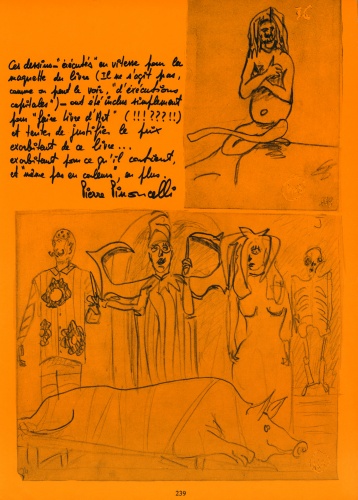 Ces dessins "exécutés" en vitesse pour la
maquette du livre (Il ne s'agit pas,
comme on peut le voir, "d'exécutions
capitales")... ont été inclus simplement
pour "faire Livre d'Art" (!!!???!!)
et tenter de justifier le prix
exorbitant de ce livre...
exorbitant pour ce qu'il contient,
et "même pas en couleurs", en plus.
Pierre Pinoncelli
J
239